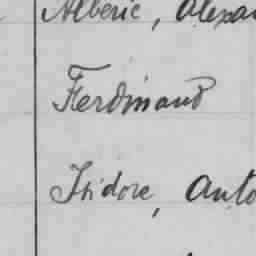 Alberic, Alexan
Ferdinand
Isidore, Anto